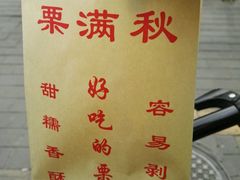 栗满秋
甜糯香酥
好吃的栗
容易剥